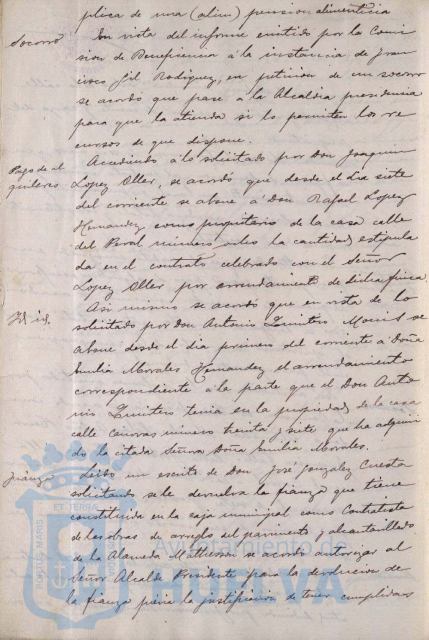 plica de una (alim) pension alimenticia
Socorro
En vista del informe emitido por la Comi
sion de Beneficencia á la instancia de Fran
cisco Gil Rodriguez, en peticion de un socorro
se acordó que pase a la Alcaldia presidencia
para que la atienda si lo permiten los re
cursos de que dispone.
Pago de al
quileres
Accediendo á lo solicitado por Don Joaquin
Lopez Oller, se acordó que desde el dia siete
del corriente se abone á Don Rafael Lopez
Hernandez como propietario de la casa calle
del Peral número ocho la cantidad estipula
da en el contrato celebrado con el Señor
Lopez Oller por arrendamiento de dicha finca.
Id id.
Asi mismo se acordó que en vista de lo
solicitado por Don Antonio Quintero se
abone desde el dia primero del corriente á Doña
Emilia Morales Hernandez el arrendamiento
correspondiente á la parte que el Don Anto
nio Quintero tenia en la propiedad de la casa
calle Cánovas número treinta y siete que ha adquiri
do la citada Señora Doña Emilia Morales.
Fianza
Leido un escrito de Don José Gonzalez Cuesta
solicitando se le devuelva la fianza que tiene
constituida en la caja municipal como Contratista
de las obras de arreglo del pavimento y alcantarillado
de la Alameda Matheson se acordó autorizar al
Señor Alcalde Presidente para la devolucion de
la fianza previa la justificacion de tener cumplidas
PORTUS MARIS ET TERRA
HUELVA